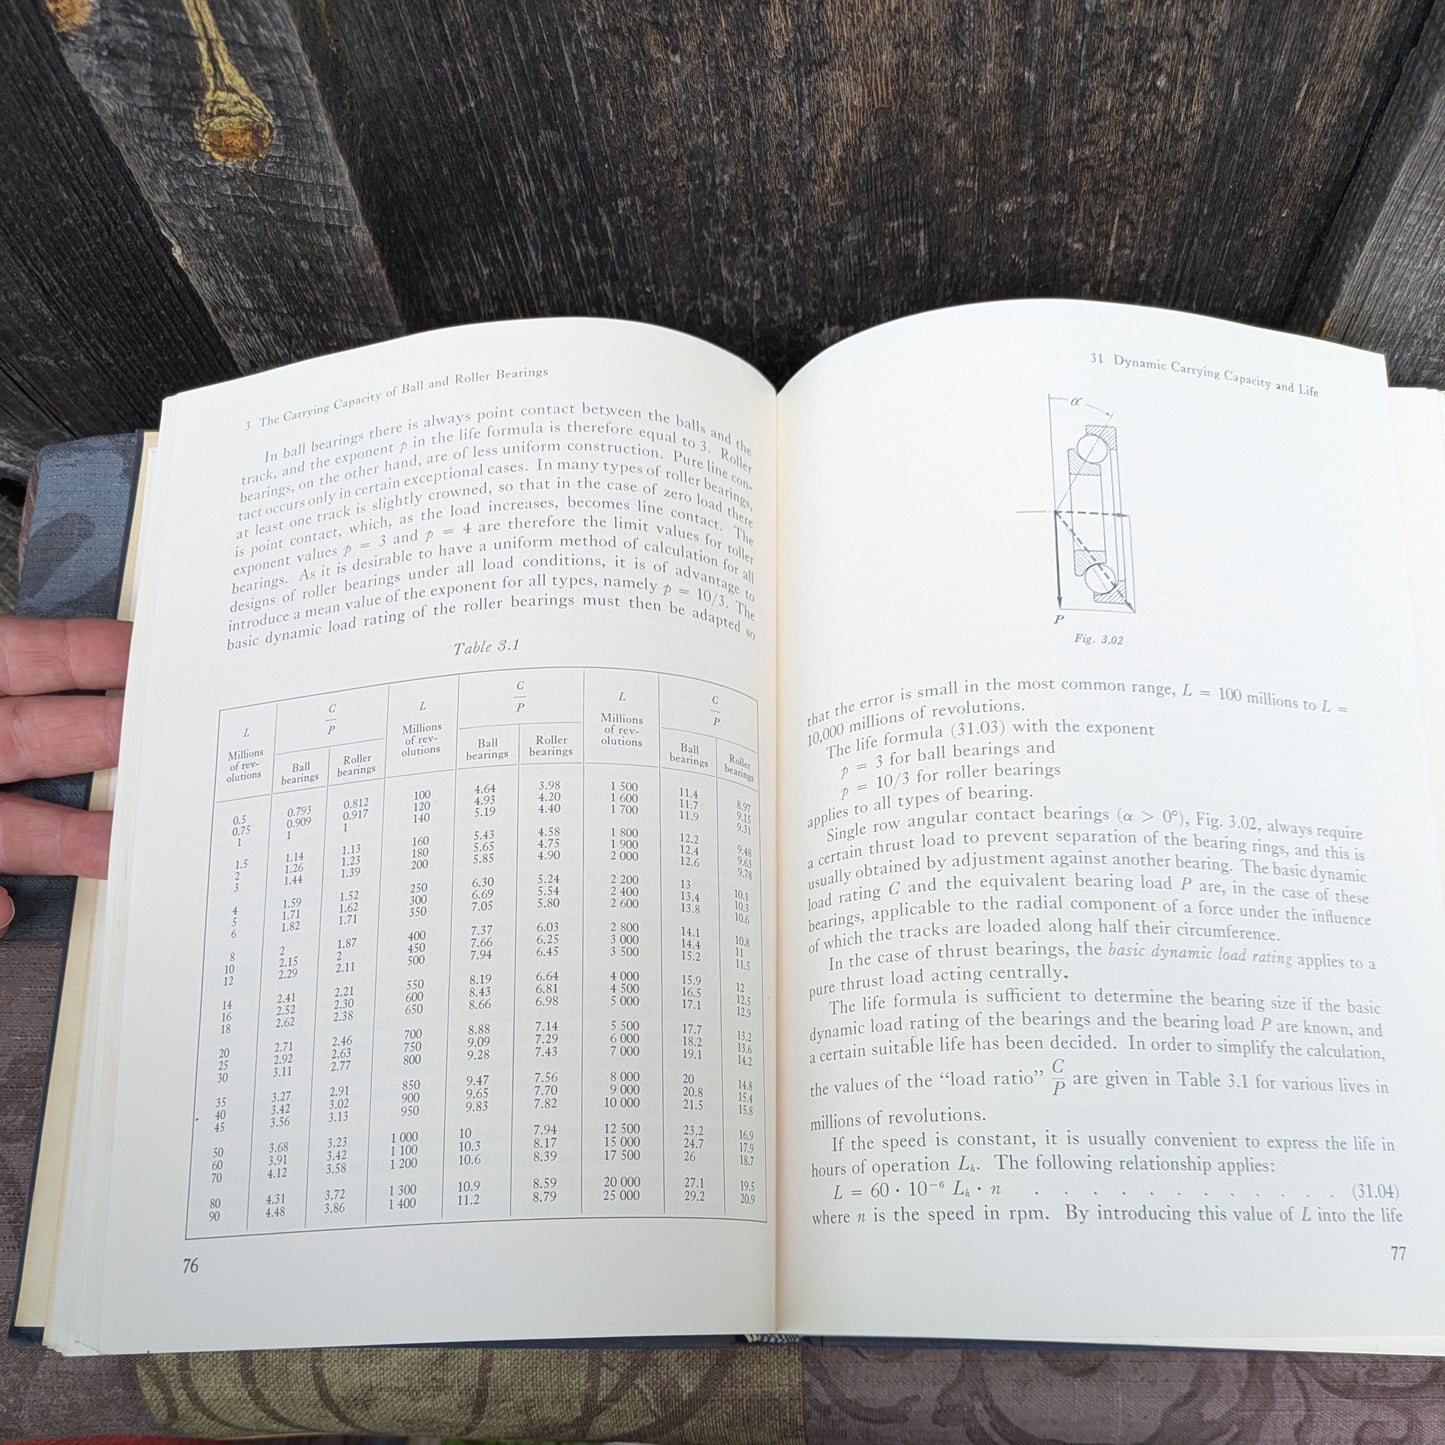 3 The Carrying Capacity of Ball and Roller Bearings
In ball bearings there is always point contact between the balls and the
track, and the exponent p in the life formula is therefore equal to 3. Roller
bearings, on the other hand, are of less uniform construction. Pure line con-
tact occurs only in certain exceptional cases. In many types of roller bearings,
at least one track is slightly crowned, so that in the case of zero load there
is point contact, which, as the load increases, becomes line contact. The
exponent values p = 3 and p = 4 are therefore the limit values for roller
bearings. As it is desirable to have a uniform method of calculation for all
designs of roller bearings under all load conditions, it is of advantage to
introduce a mean value of the exponent for all types, namely p = 10/3. The
basic dynamic load rating of the roller bearings must then be adapted so
Table 3.1
L C/P L C/P L C/P
Millions of rev- olutions Ball bearings Roller bearings Millions of rev- olutions Ball bearings Roller bearings Millions of rev- olutions Ball bearings Roller bearings
0.5 0.793 0.812 100 4.64 3.98 1 500 11.4 8.97
0.75 0.909 0.917 120 4.93 4.20 1 600 11.7 9.15
1 1 1 140 5.19 4.40 1 700 11.9 9.31
1.5 1.14 1.13 160 5.43 4.58 1 800 12.2 9.48
2 1.26 1.23 180 5.65 4.75 1 900 12.4 9.63
3 1.44 1.39 200 5.85 4.90 2 000 12.6 9.78
4 1.59 1.52 250 6.30 5.24 2 200 13 10.1
5 1.71 1.62 300 6.69 5.54 2 400 13.4 10.3
6 1.82 1.71 350 7.05 5.80 2 600 13.8 10.6
8 2 1.87 400 7.37 6.03 2 800 14.1 10.8
10 2.15 2 450 7.66 6.25 3 000 14.4 11
12 2.29 2.11 500 7.94 6.45 3 500 15.2 11.5
14 2.41 2.21 550 8.19 6.64 4 000 15.9 12
16 2.52 2.30 600 8.43 6.81 4 500 16.5 12.5
18 2.62 2.38 650 8.66 6.98 5 000 17.1 12.9
20 2.71 2.46 700 8.88 7.14 5 500 17.7 13.2
25 2.92 2.63 750 9.09 7.29 6 000 18.2 13.6
30 3.11 2.77 800 9.28 7.43 7 000 19.1 14.2
35 3.27 2.91 850 9.47 7.56 8 000 20 14.8
40 3.42 3.02 900 9.65 7.70 9 000 20.8 15.4
45 3.56 3.13 950 9.83 7.82 10 000 21.5 15.8
50 3.68 3.23 1 000 10 7.94 12 500 23.2 16.9
60 3.91 3.42 1 100 10.3 8.17 15 000 24.7 17.9
70 4.12 3.58 1 200 10.6 8.39 17 500 26 18.7
80 4.31 3.72 1 300 10.9 8.59 20 000 27.1 19.5
90 4.48 3.86 1 400 11.2 8.79 25 000 29.2 20.9
76
31 Dynamic Carrying Capacity and Life
α
P
Fig. 3.02
that the error is small in the most common range, L = 100 millions to L =
10,000 millions of revolutions.
The life formula (31.03) with the exponent
p = 3 for ball bearings and
p = 10/3 for roller bearings
applies to all types of bearing.
Single row angular contact bearings (α > 0°), Fig. 3.02, always require
a certain thrust load to prevent separation of the bearing rings, and this is
usually obtained by adjustment against another bearing. The basic dynamic
load rating C and the equivalent bearing load P are, in the case of these
bearings, applicable to the radial component of a force under the influence
of which the tracks are loaded along half their circumference.
In the case of thrust bearings, the basic dynamic load rating applies to a
pure thrust load acting centrally.
The life formula is sufficient to determine the bearing size if the basic
dynamic load rating of the bearings and the bearing load P are known, and
a certain suitable life has been decided. In order to simplify the calculation,
the values of the “load ratio” C/P are given in Table 3.1 for various lives in
millions of revolutions.
If the speed is constant, it is usually convenient to express the life in
hours of operation Lₕ. The following relationship applies:
L = 60 · 10⁻⁶ Lₕ · n . . . . . . . . . . . . (31.04)
where n is the speed in rpm. By introducing this value of L into the life
77